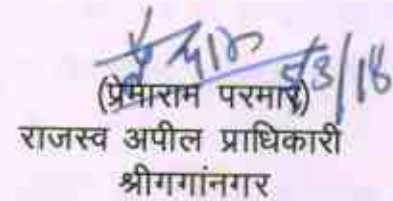 5/3/18
(प्रेमाराम परमार)
राजस्व अपील प्राधिकारी
श्रीगगांनगर